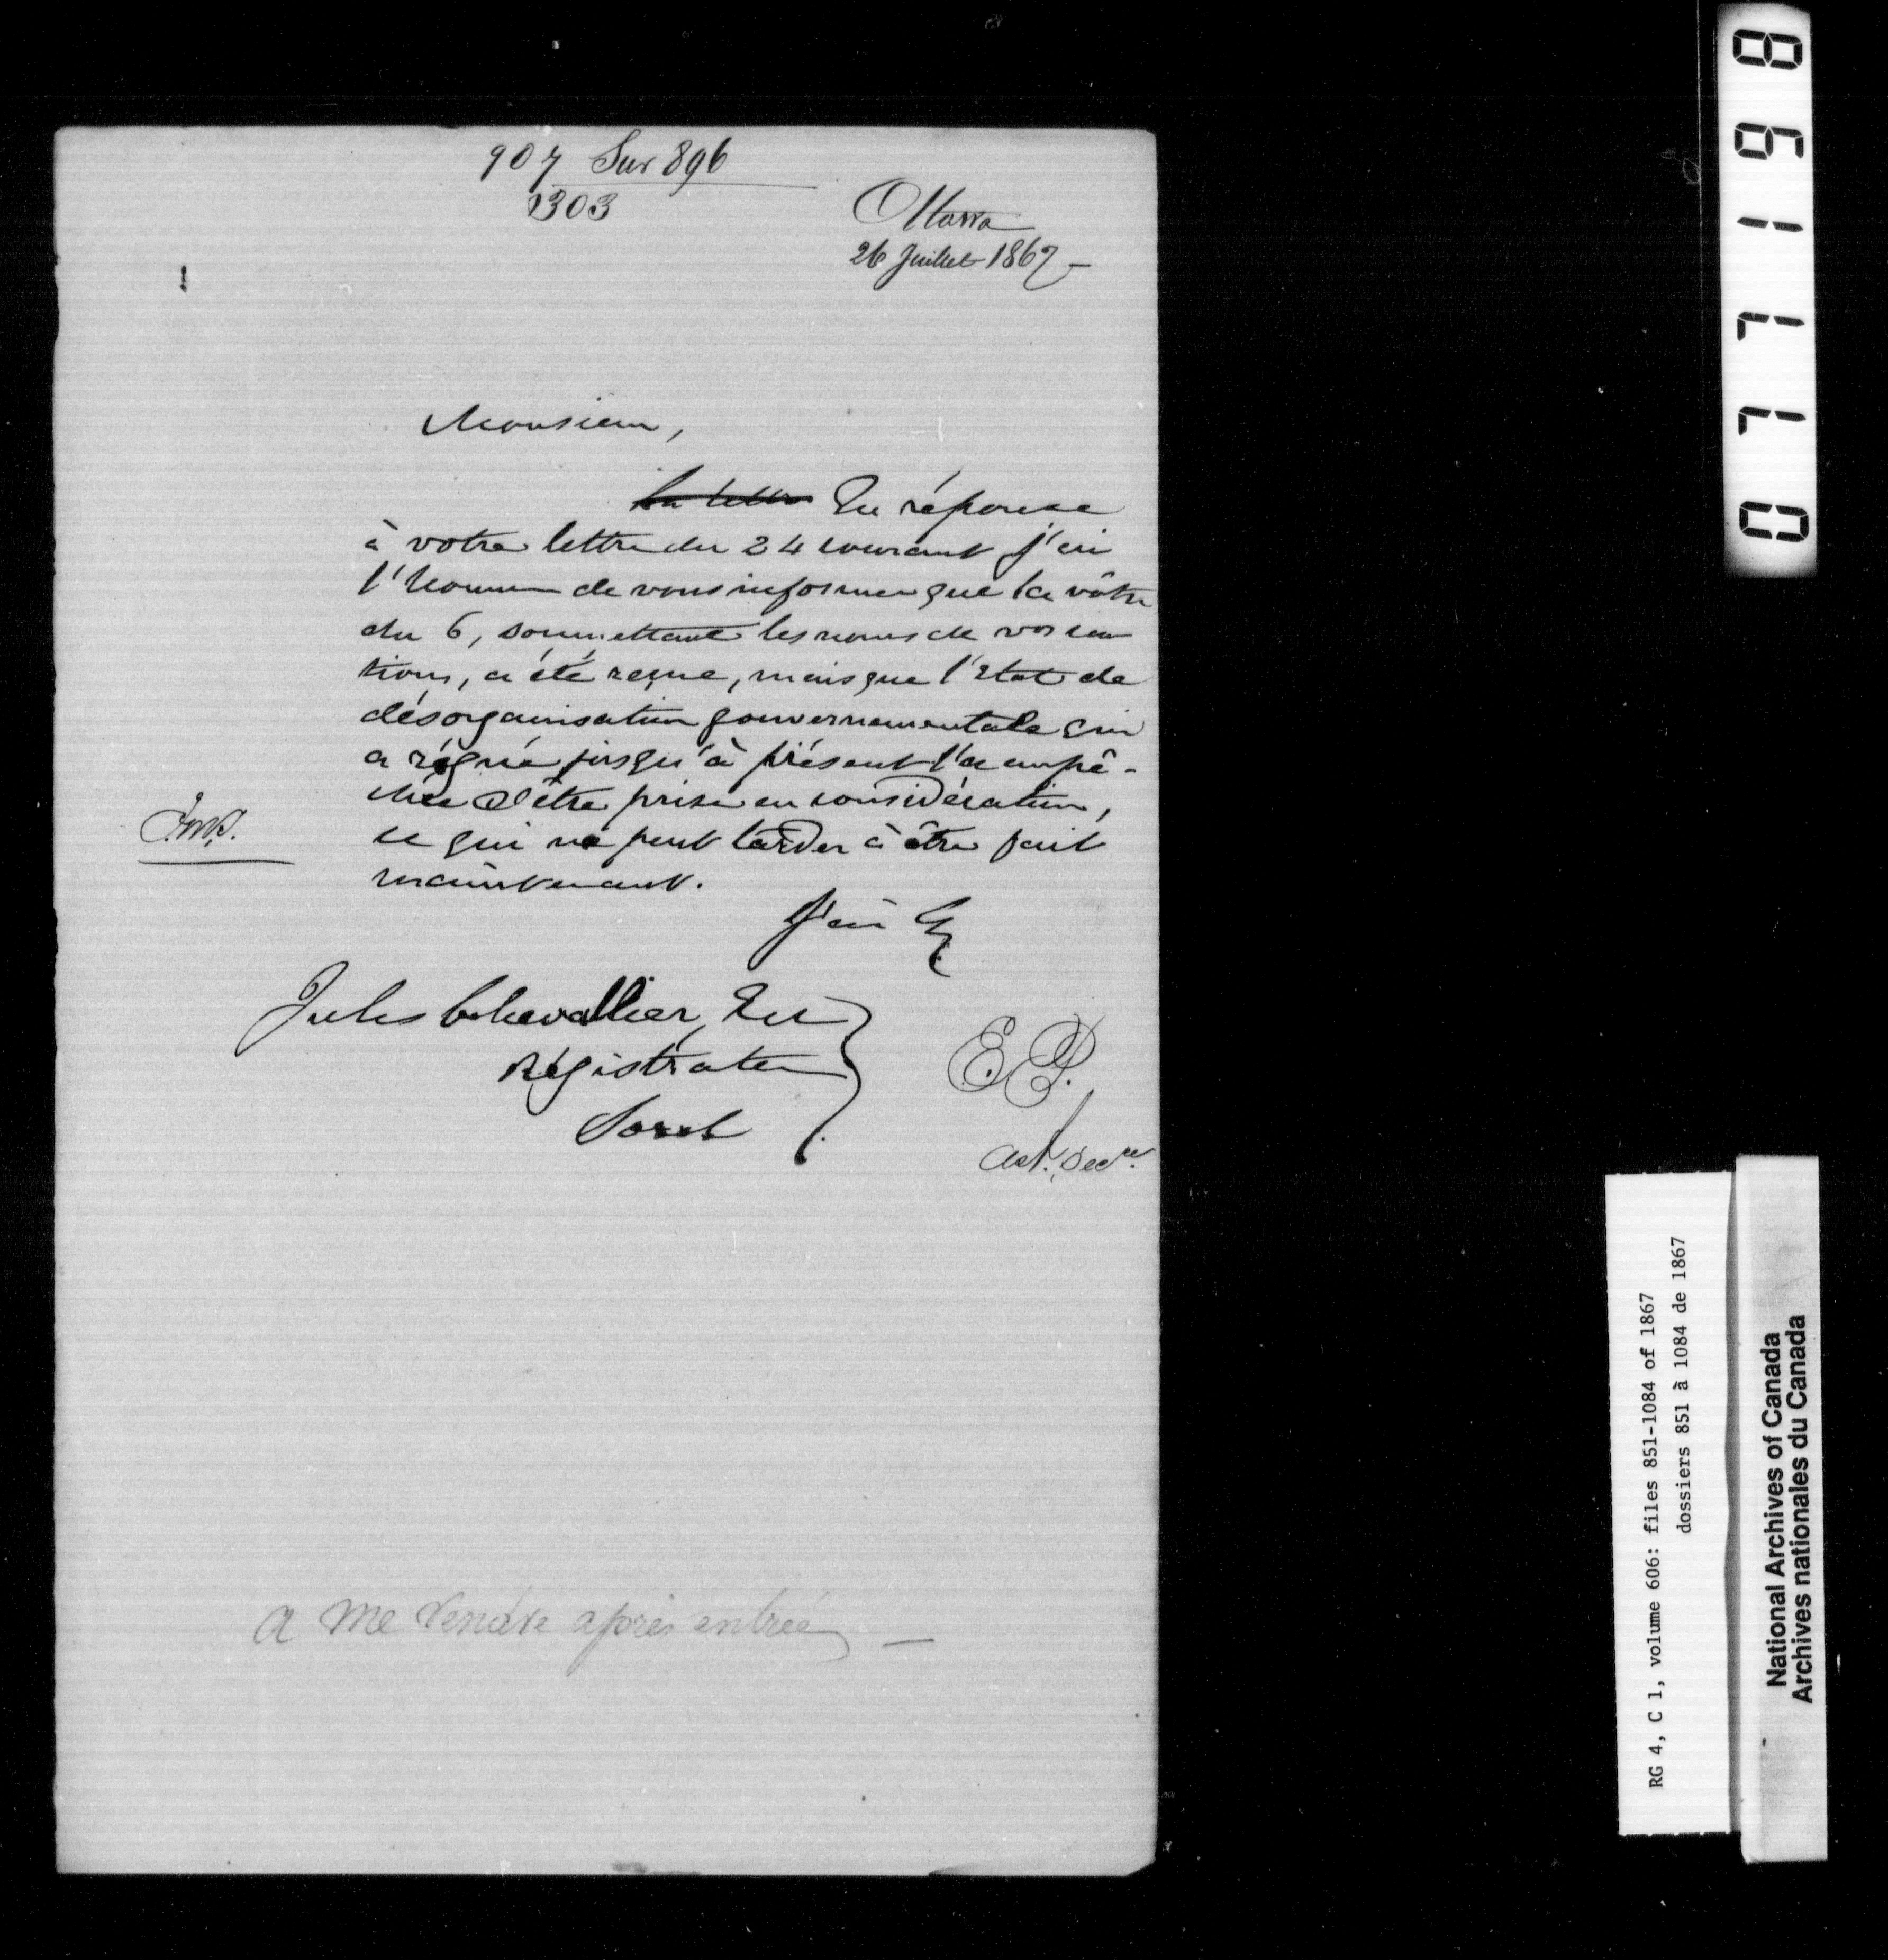 907 Sur 896
1303
Ottawa
26 Juillet 1867 —
Monsieur,
La lettre En réponse
à votre lettre du 24 courant j'ai
l'honneur de vous informer que la vôtre
du 6, soumettant les noms de vos cau
tions, a été reçue, mais que l'état de
désorganisation gouvernementale qui
a régné jusqu'à présent l'a empê-
chée d'être prise en considération,
ce qui ne peut tarder à être fait
maintenant.
J'ai &.
Jules Chevallier, Eu
Régistrateur
Sorel
E.P.
Ast. Secre.
A me rendre après entrée —
07719 8
RG 4, C 1, volume 606: files 851-1084 of 1867
dossiers 851 à 1084 de 1867
National Archives of Canada
Archives nationales du Canada